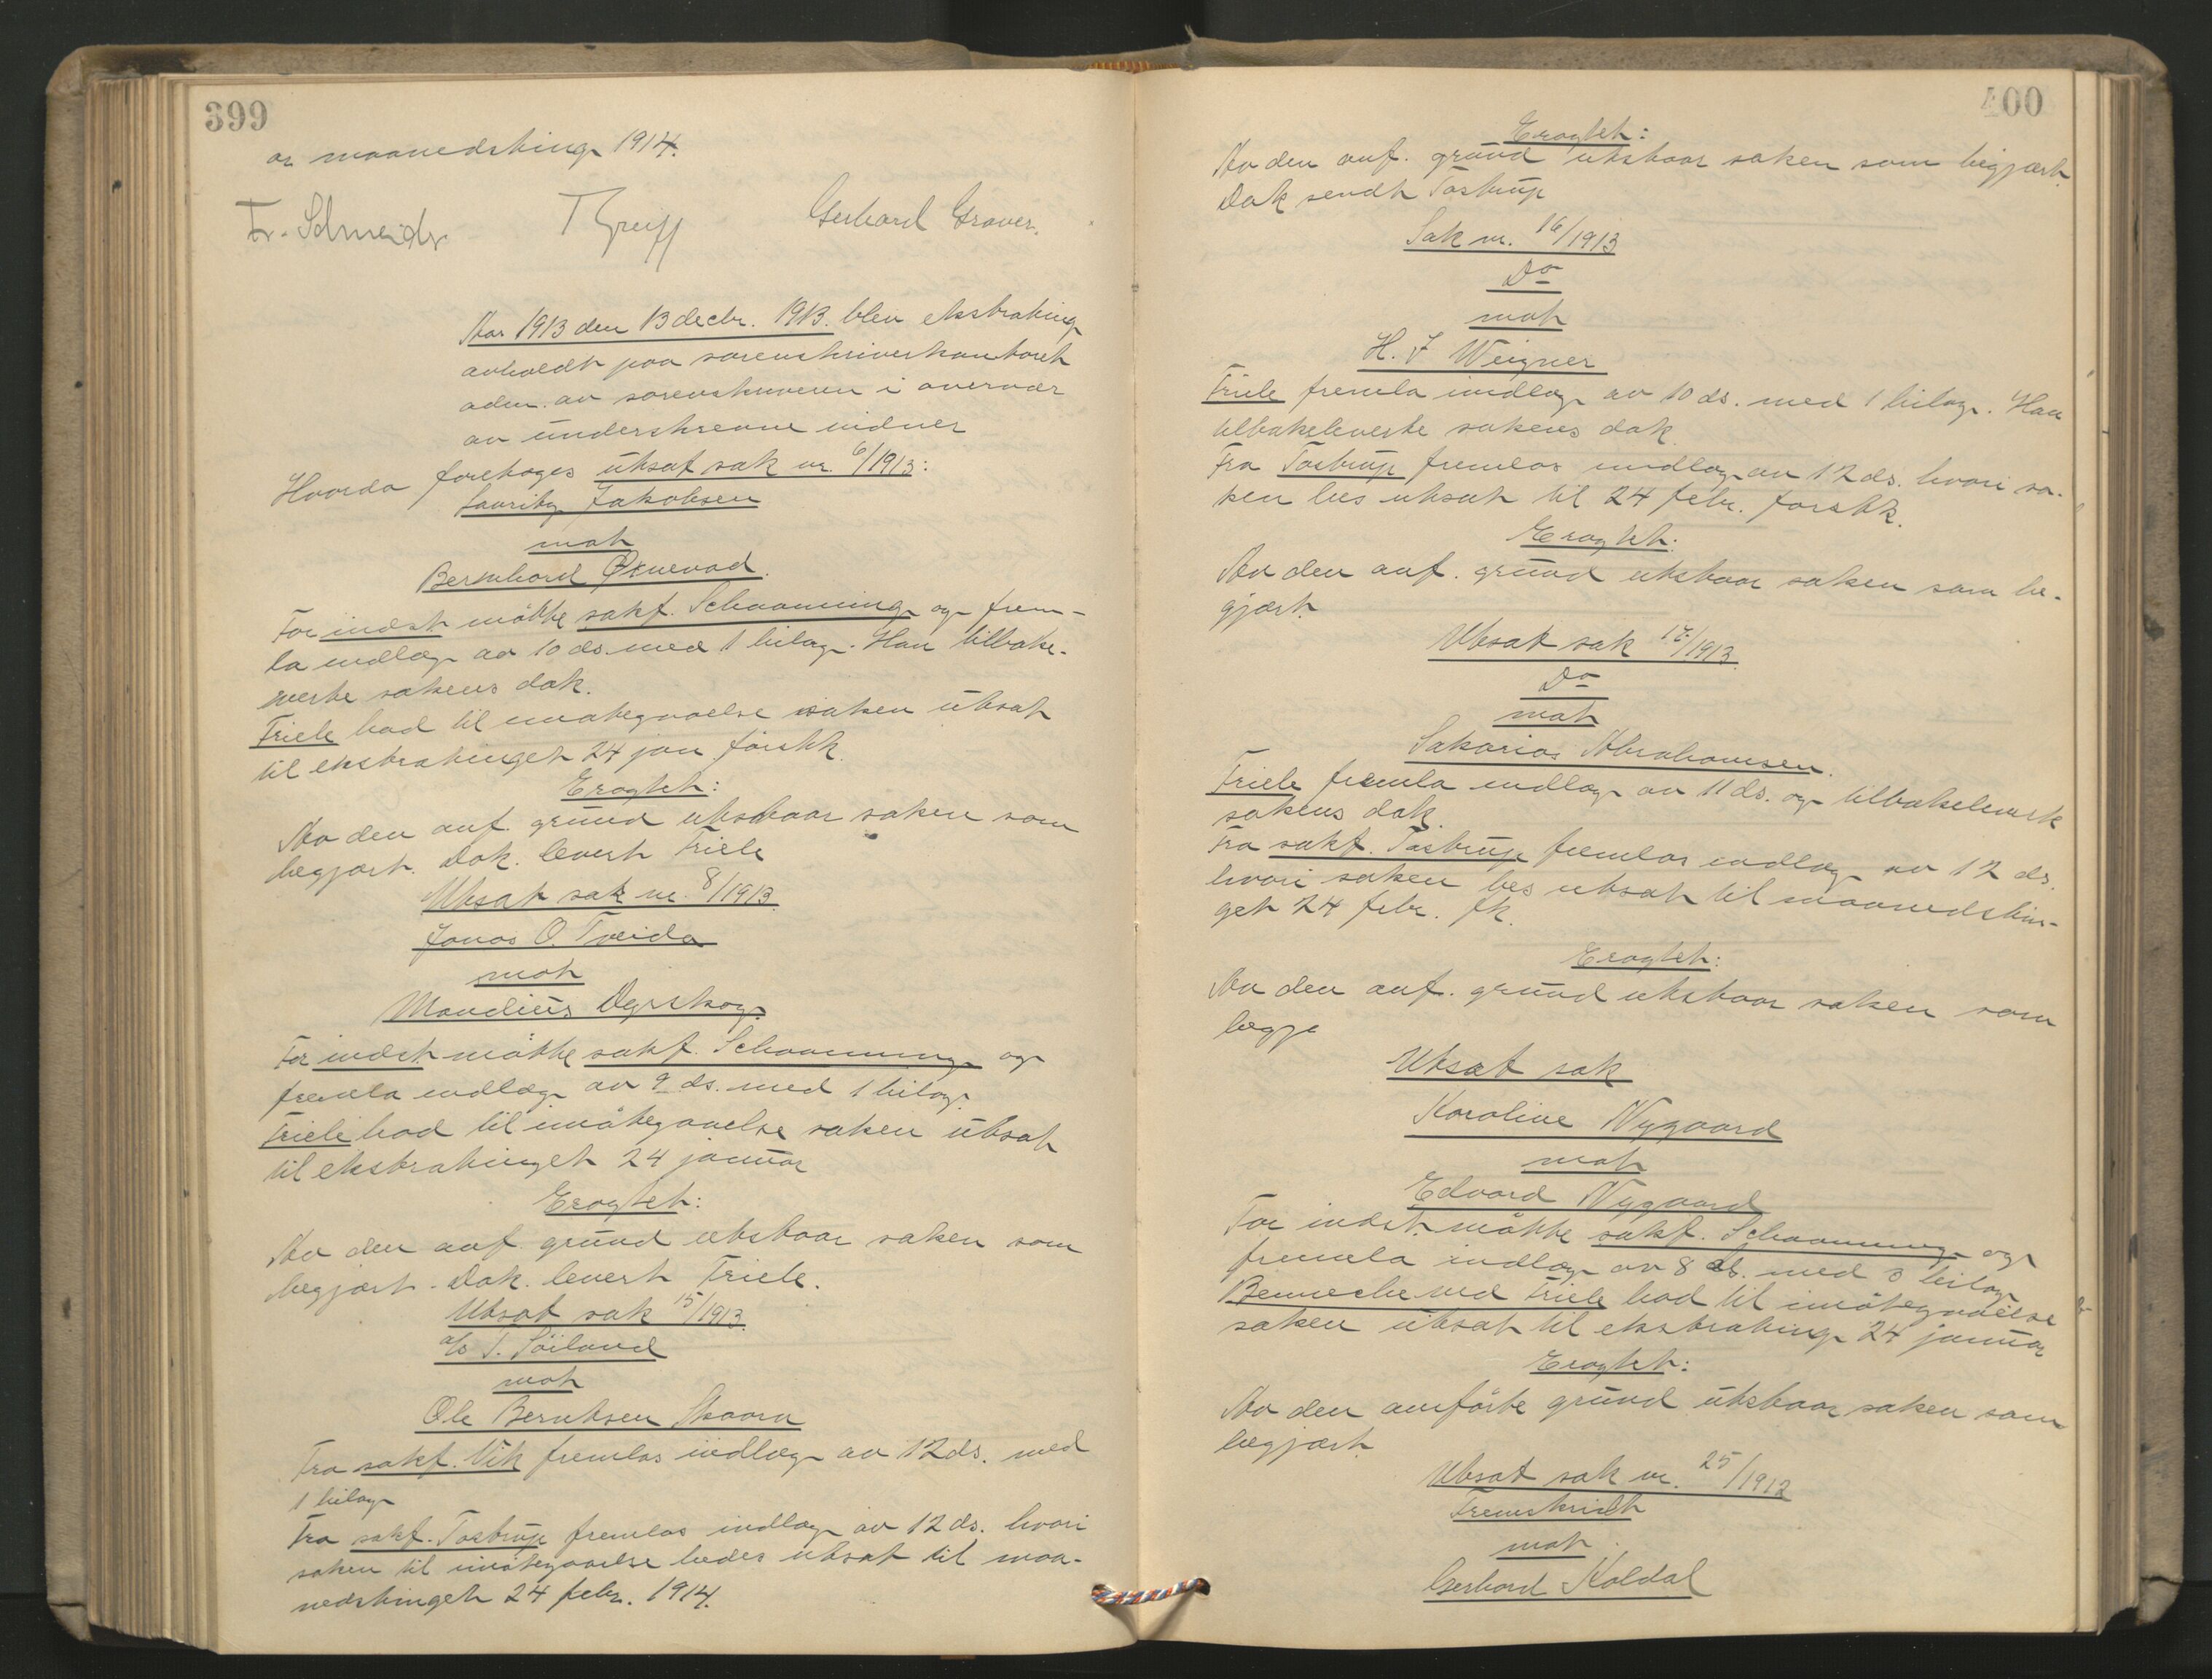 399
ar maanedsting 1914.
Fr. Schneider T Greiff Gerhard Graver.
Aar 1913 den 13 decbr. 1913 blev ekstrating
avholdt paa sorenskriverkontoret
adm. av sorenskriveren i overvær
av underskrevne vidner
Hvorda foretoges utsat sak nr. 6/1913:
Lauritz Jakobsen
mot
Bernhard Øknevad.
For indst. møtte sakf. Schaanning og frem-
la indlæg av 10 ds. med 1 bilag. Han tilbake-
leverte sakens dok.
Friele bad til imøtegaaelse saken utsat
til ekstratinget 24 jan førstk.
Eragtet:
Av den anf. grund utstaar saken som
begjært. Dok. levert Friele
Utsat sak nr. 8/1913
Jonas O. Tveida
mot
Maudius Dyrskog.
For indst. møtte sakf. Schaanning og
fremla indlæg av 9 ds. med 1 bilag.
Friele bad til imøtegaaelse saken utsat
til ekstratinget 24 januar
Eragtet:
Av den anf. grund utstaar saken som
begjært. Dok. levert Friele.
Utsat sak 15/1913
a/s T. Søiland
mot
Ole Berntsen Skaara
Fra sakf. Vik fremlas indlæg av 12 ds. med
1 bilag
Fra sakf. Tostrup fremlas indlæg av 12 ds. hvori
saken til imøtegaaelse bedes utsat til maa-
nedstinget 24 febr. 1914.
400
Eragtet:
Av den anf. grund utstaar saken som begjært.
Dok sendt Tostrup
Sak nr. 16/1913
Do
mot
H. J Weigner
Friele fremla indlæg av 10 ds. med 1 bilag. Han
tilbakeleverte sakens dok.
Fra Tostrup fremlas indlæg av 12 ds. hvori sa-
ken bes utsat til 24 febr. førstk.
Eragtet:
Av den anf. grund utstaar saken som be-
gjært.
Utsat sak 17/1913
Do
mot
Sakarias Abrahamsen.
Friele fremla indlæg av 11 ds. og tilbakelevert
sakens dok.
Fra sakf. Tostrup fremlas indlæg av 12 ds.
hvori saken bes utsat til maanedstin-
get 24 febr. fk.
Eragtet:
Av den anf. grund utstaar saken som
begjæ
Utsat sak
Karoline Nygaard
mot
Edvard Nygaard
For indst. møtte sakf. Schaanning og
fremla indlæg av 8 ds. med 3 bilag
Bennecke ved Friele bad til imøtegaaelse
saken utsat til ekstrating 24 januar
Eragtet:
Av den anførte grund utstaar saken som
begjært.
Utsat sak nr. 25/1912
Fremskridt
mot
Gerhard Koldal